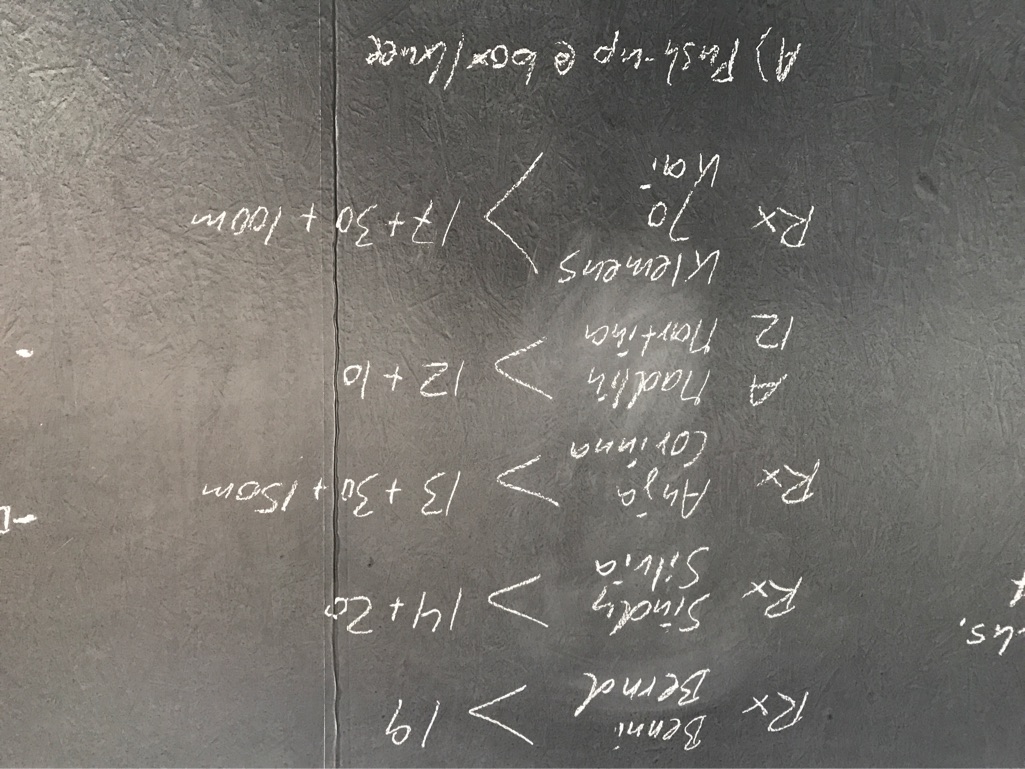 Benni
Rx > 19
Bernd
Sindy
Rx > 14 + 20
Silvia
Anja
Rx > 13 + 30 + 150m
Corinna
A Madlin > 12 + 10
12 Martina
Klemens
Rx Jo > 17 + 30 + 100m
Kai
A) Push-up @ box/knee